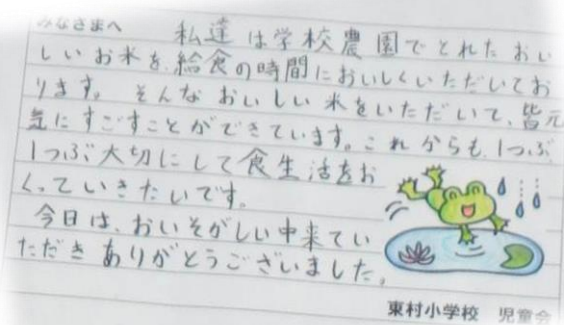 みなさまへ
私達は学校農園でとれたおい
しいお米を、給食の時間においしくいただいてお
ります。そんなおいしい米をいただいて、皆元
気にすごすことができています。これからも、1つぶ
1つぶ大切にして食生活をお
くっていきたいです。
今日は、おいそがしい中来てい
ただきありがとうございました。
東村小学校 児童会